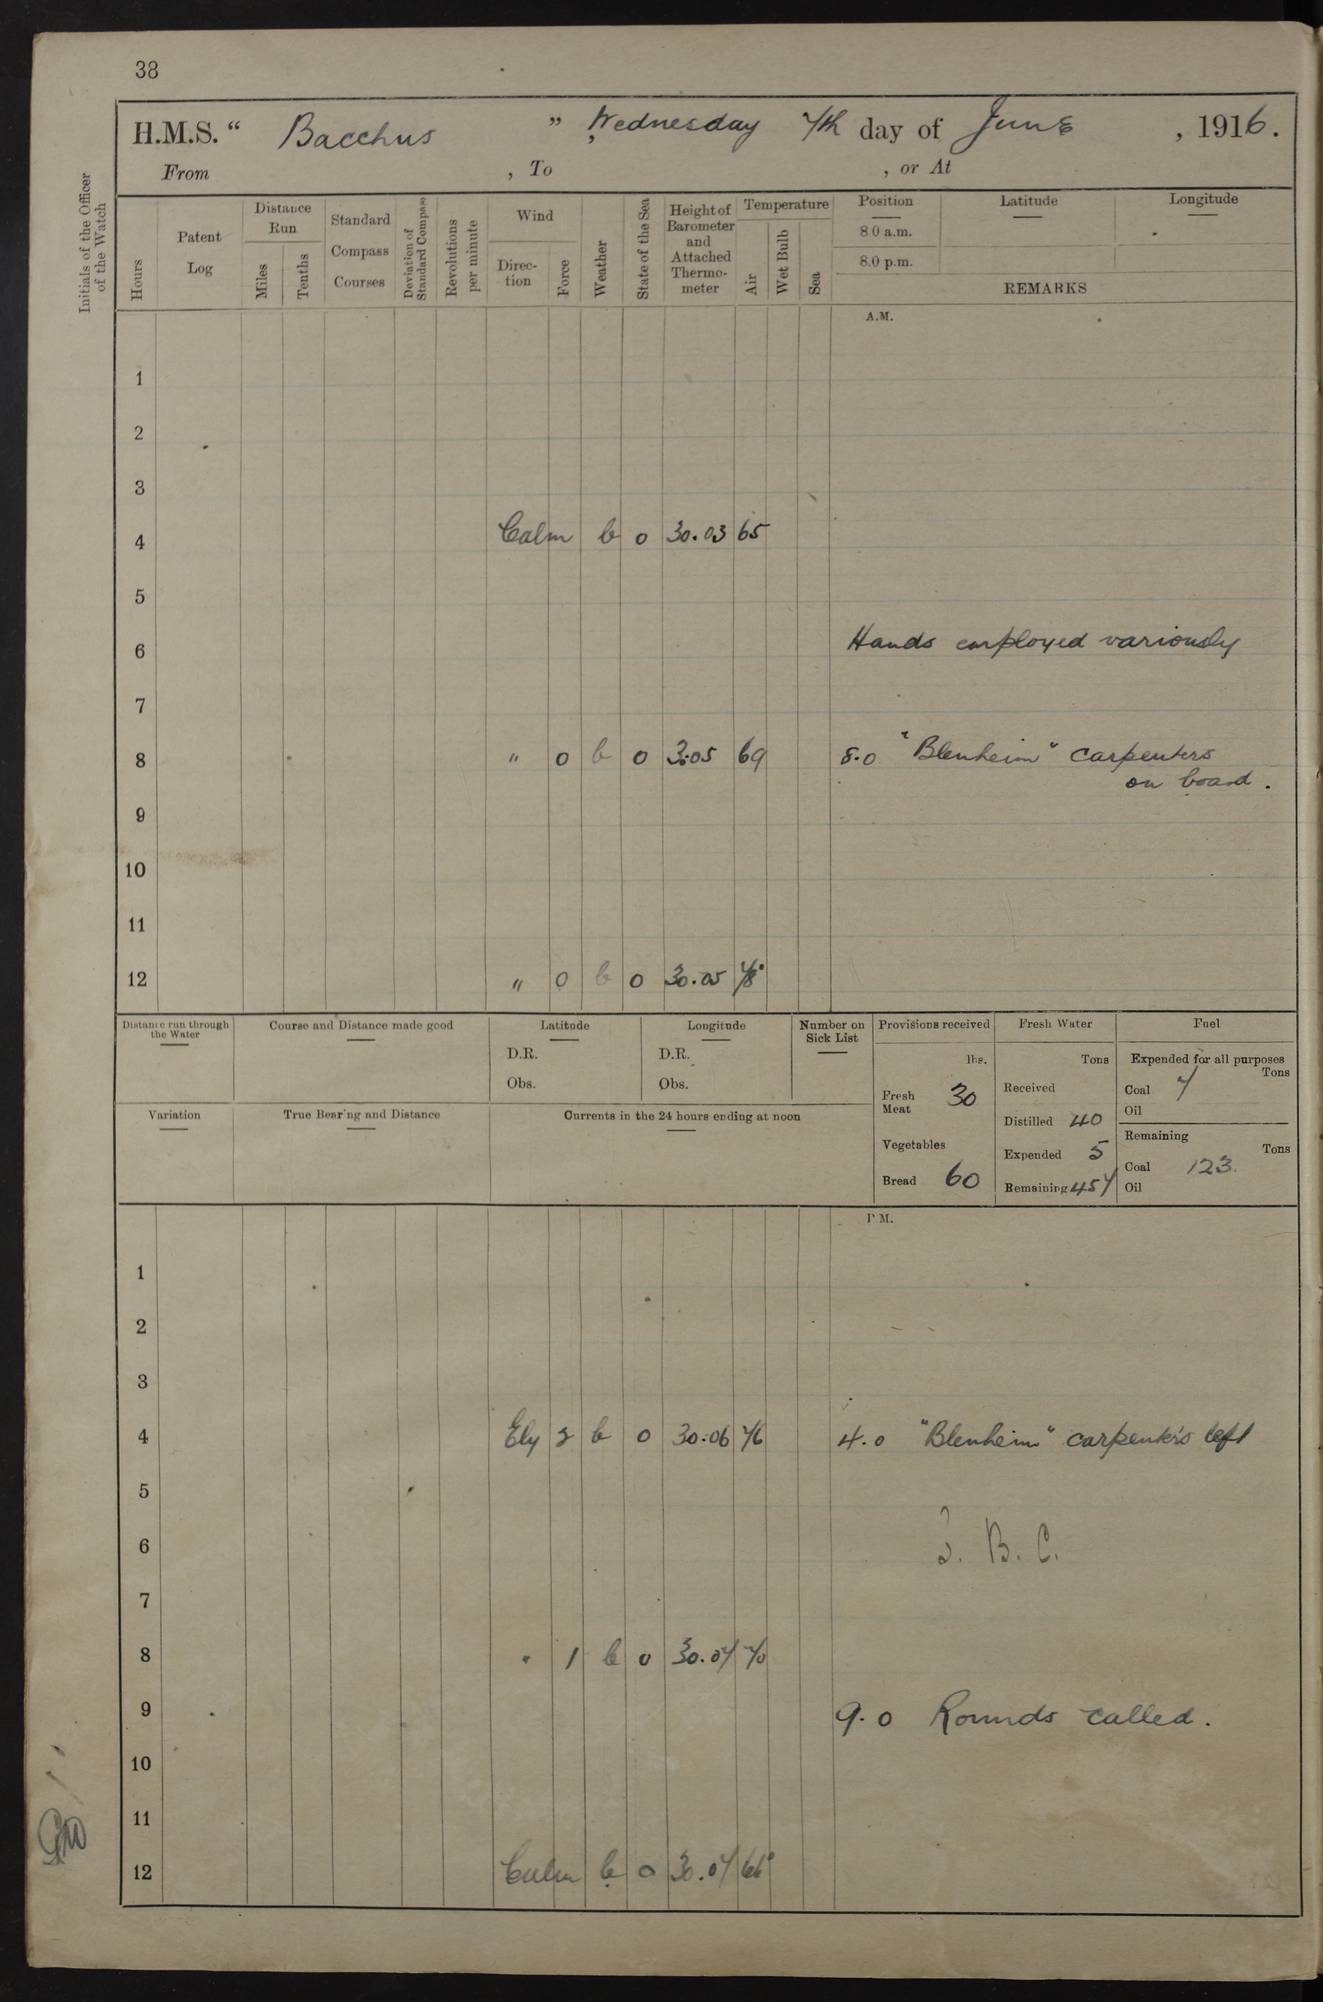 38
H.M.S. “ Bacchus ” Wednesday 7th day of June , 1916.
From , To , or At
Initials of the Officer of the Watch
Hours
Patent Log
Distance Run
Miles
Tenths
Standard Compass Courses
Deviation of Standard Compass
Revolutions per minute
Wind
Direction
Force
Weather
State of the Sea
Height of Barometer and Attached Thermometer
Temperature
Air
Wet Bulb
Sea
Position
8.0 a.m.
8.0 p.m.
Latitude
Longitude
REMARKS
A.M.
1
2
3
4 Calm b o 30.03 65
5
6 Hands employed variously
7
8 " 0 b o 3.05 69 8.0 "Blenheim" carpenters
on board.
9
10
11
12 " 0 b o 30.05 78
Distance run through the Water
Course and Distance made good
Latitude
D.R.
Obs.
Longitude
D.R.
Obs.
Number on Sick List
Variation
True Bearing and Distance
Currents in the 24 hours ending at noon
Provisions received
lbs.
Fresh Meat 30
Vegetables
Bread 60
Fresh Water
Tons
Received
Distilled 40
Expended 5
Remaining 457
Fuel
Expended for all purposes
Tons
Coal 7
Oil
Remaining
Tons
Coal 123
Oil
P.M.
1
2
3
4 Ely 2 b o 30.06 76 4.0 "Blenheim" carpenters left
5
6 B. C.
7
8 " 1 b o 30.07 70
9 9.0 Rounds called.
10
11
12 Calm b o 30.07 66°